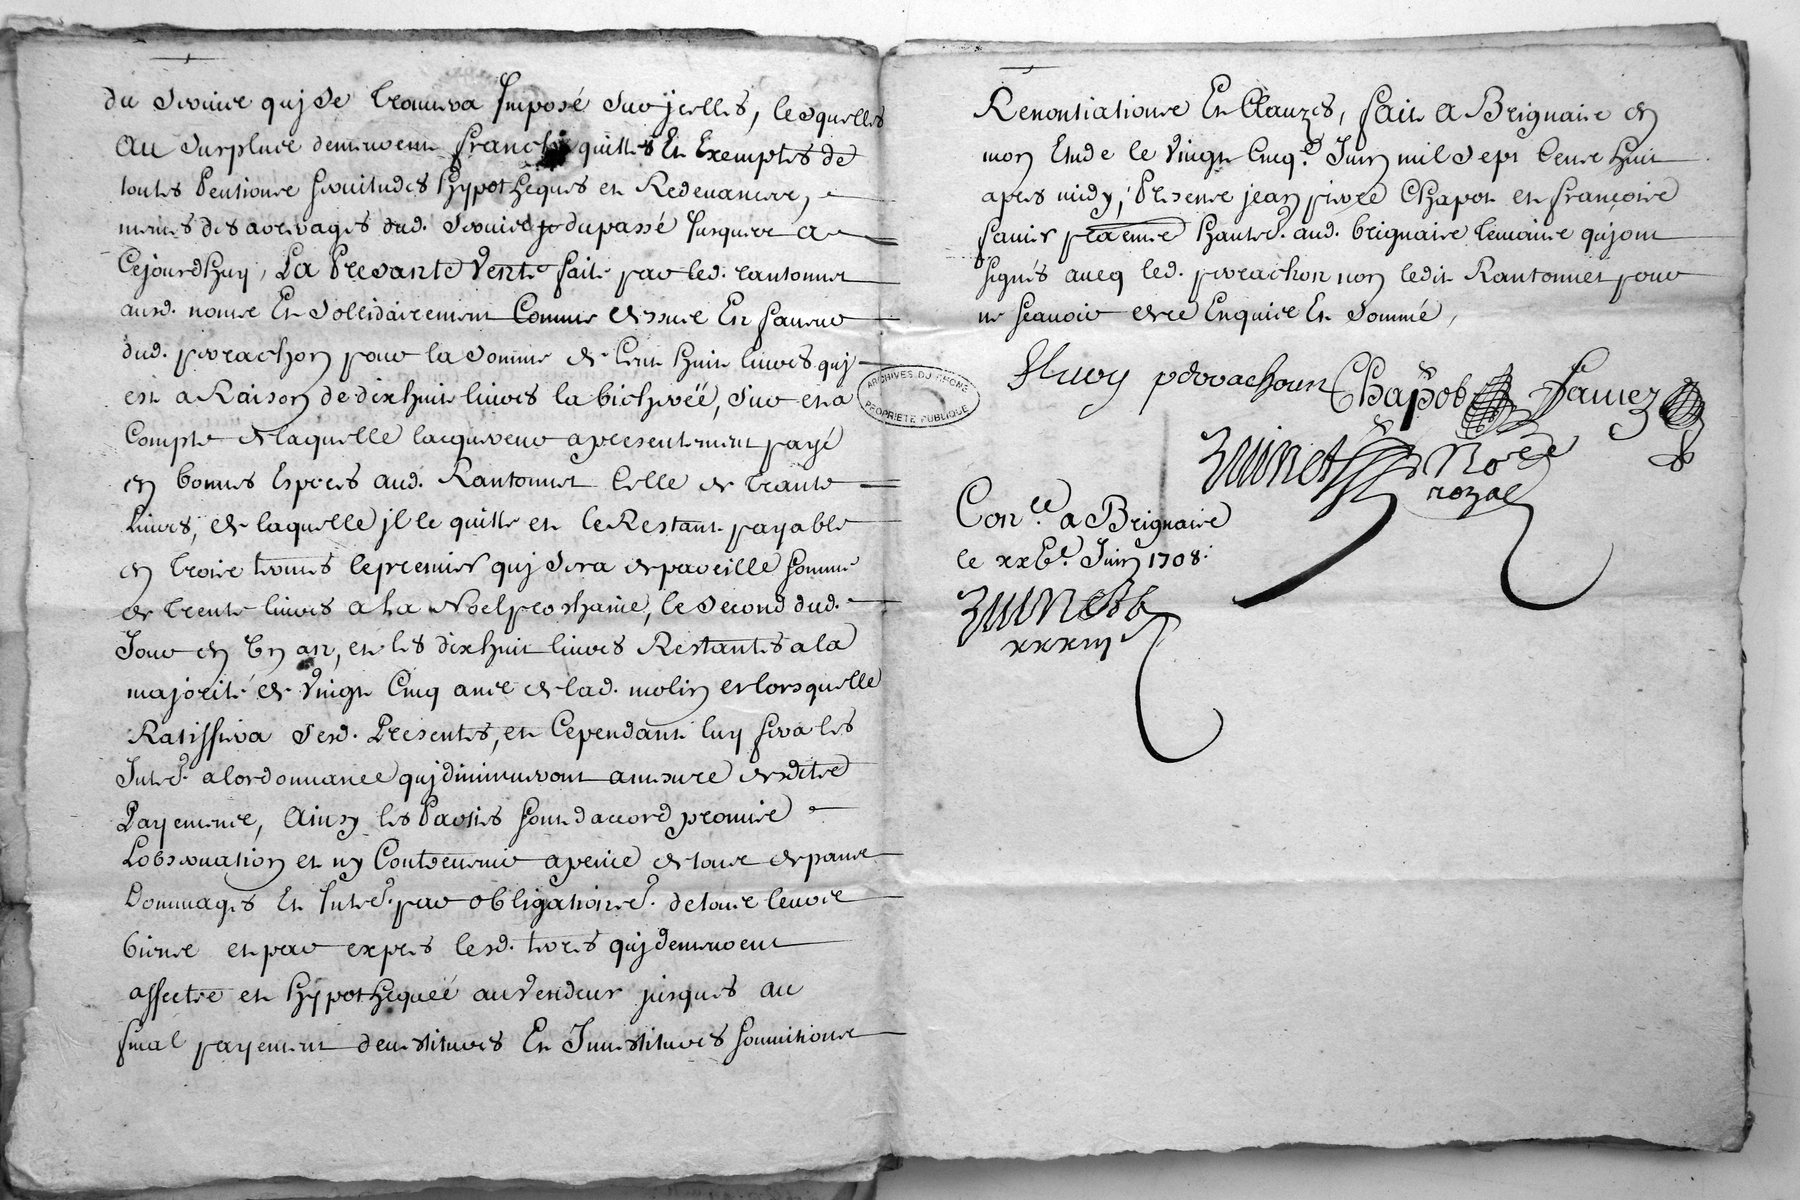 du Service quj se trouvera Imposé sur jcelles, lesquelles
Au Surplus demeurent franches quittes Et Exemptes de
toutes Pentions servitudes Hypotheques et Redevances,
mesmes des arrerages dud. Service du passé Jusques a
Cejourdhuy, La Presante Vente faite par led. rantonnet
ausd. noms Et Sollidairement Comme dessus En faveur
dud. perrachon pour la Somme de Cent huit livres quj
est a Raison de dixhuit livres la bicherëë, Sur et a
Compte de laquelle lacquereur a presentement payé
en bonnes Especes aud. Rantonnet Celle de trante
Livres, de laquelle jl le quitte et le Restant payable
en trois termes le premier quj sera de pareille somme
de trente livres a la Noel prochaine, le Second dud.
Jour en Un an, et les dixhuit livres Restantes a la
majorité de Vingt Cinq ans de lad. molin et lorsquelle
Ratiffira Sesd. Presentes, et Cependant luy sera les
Interes. a lordonnance quj diminueront a mesure desdits
Payements, Ainsy les Parties sont daccord promis
Lobservation et ny Contrevenir a peine de tous despans
Dommages Et Interes. par obligations. de tous leurs
biens et par expres lesd. terres quj demeurent
affectés et Hypothequéé au Vendeur jusques au
final payement devestitures Et Investitures soumitions
Renontiations Et Clauzes, fait a Brignais en
mon Etude le Vingt Cinq.e Juin mil Sept Cents huit
apres midy, Presents jean pierre Chapot et françois
favier praticiens Habts. aud. brignais temoins quj ont
signés avecq led. perrachon non ledit Rantonnet pour
ne scavoir de ce Enquis Et Sommé,
perrachon Chapot favier
No.re
royal
Con.lé a Brignais
le xxb.e Juin 1708.
ARCHIVES DU RHONE
PROPRIETE PUBLIQUE